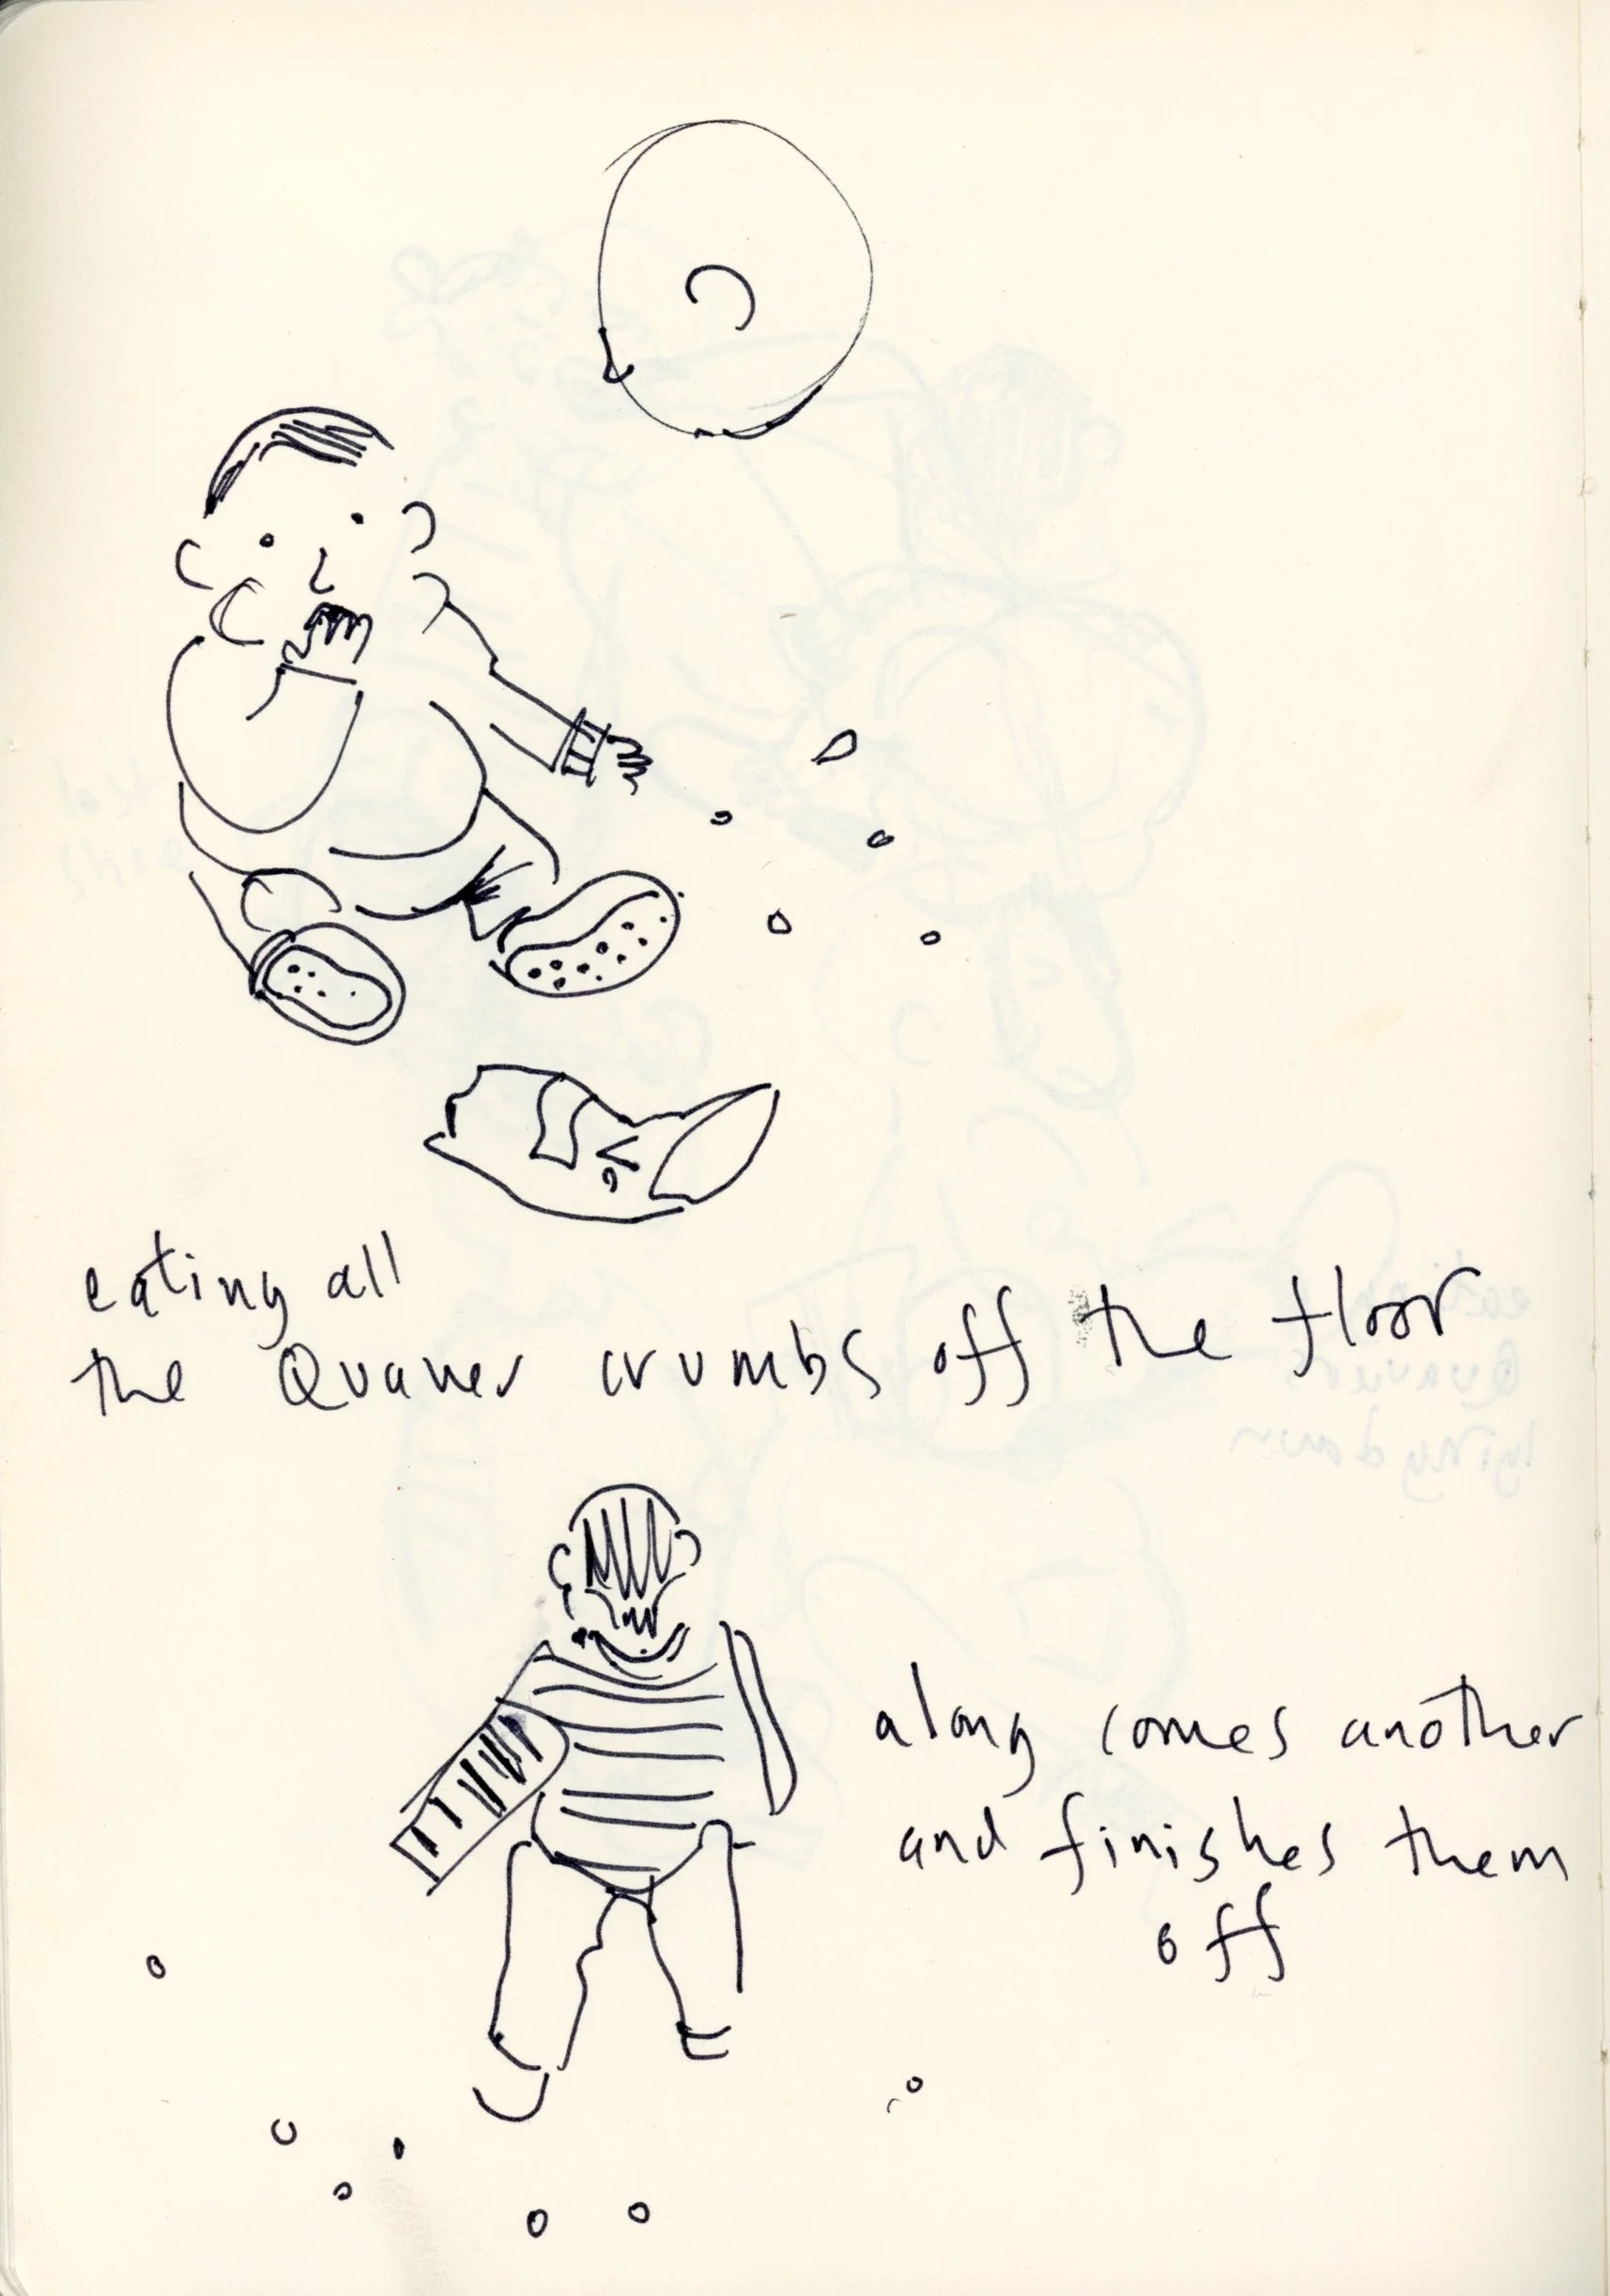 eating all
the Quaver crumbs off the floor
along comes another
and finishes them
off